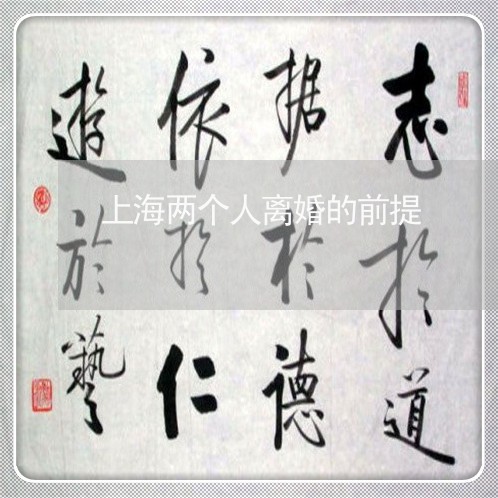 志扵道
据扵德
依扵仁
遊於藝
上海两个人离婚的前提